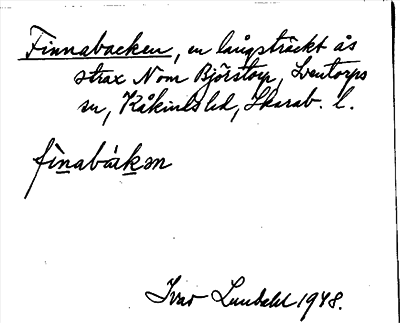 Finnabacken, en långsträckt ås
strax N om Björstorp, Lventorps
sn, Kåkinds hd, Skarab. l.
fìnabàkən
Ivar Lundahl 1948.